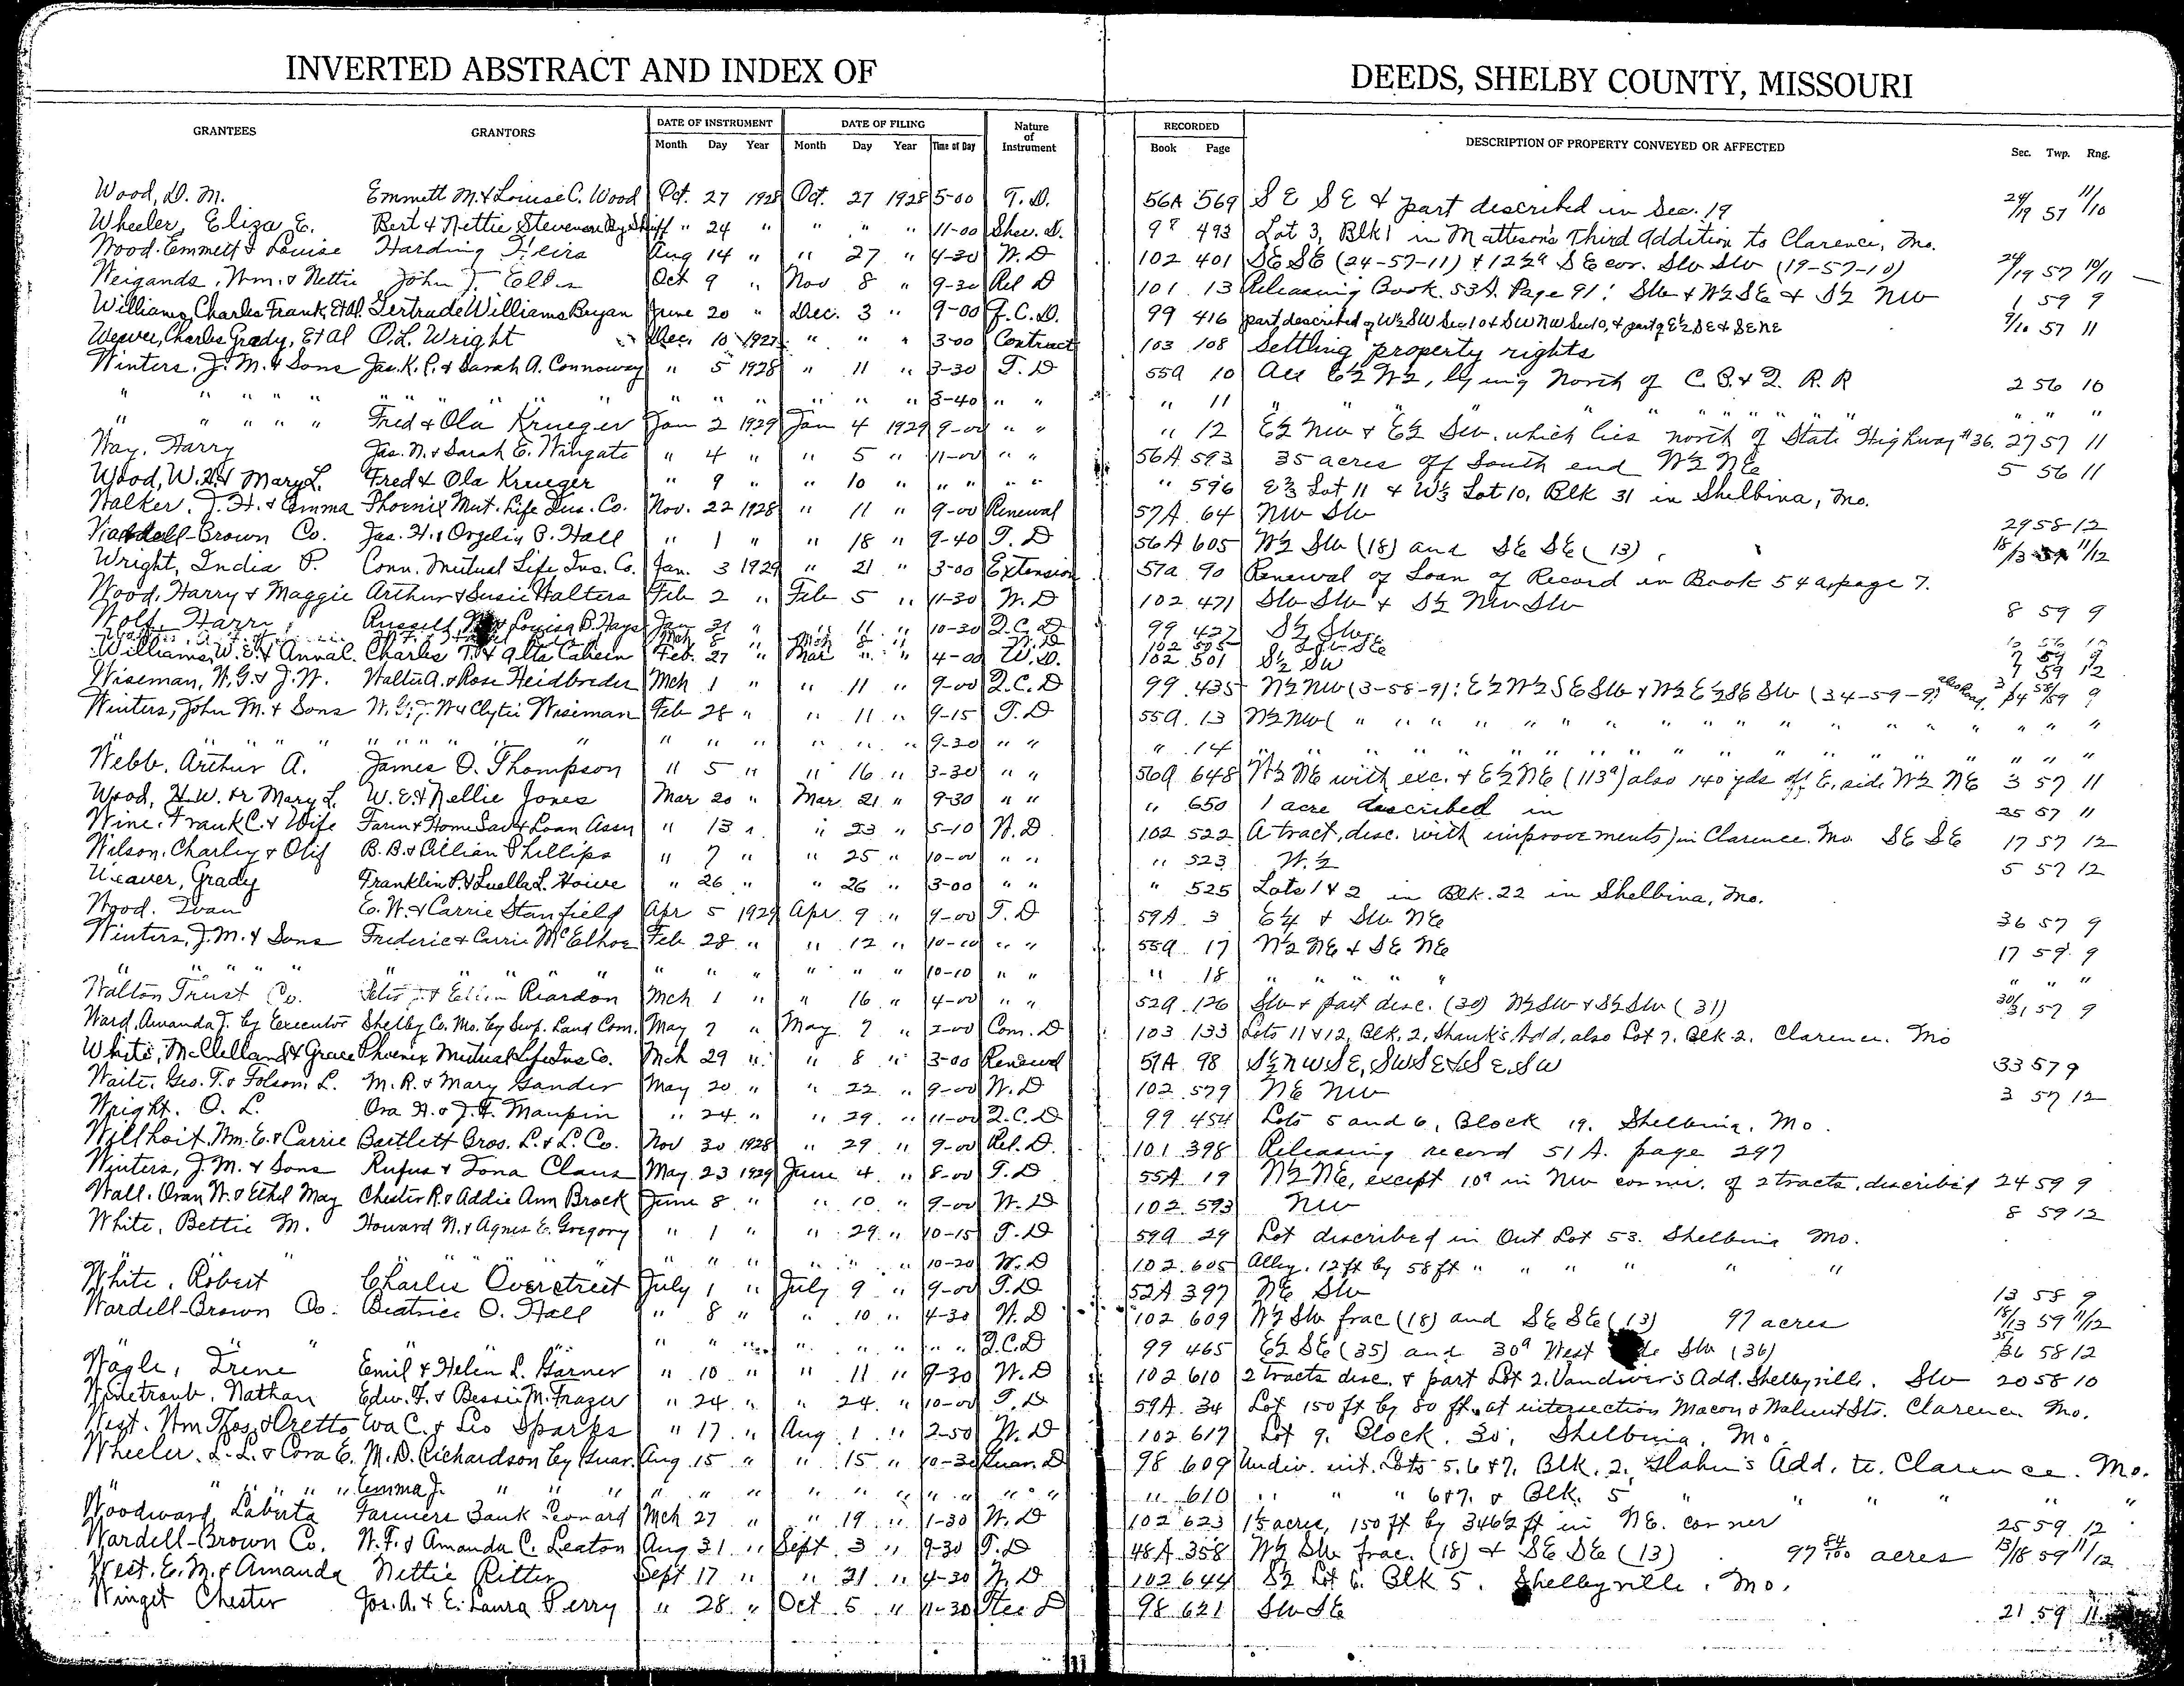 INVERTED ABSTRACT AND INDEX OF DEEDS, SHELBY COUNTY, MISSOURI
GRANTEES GRANTORS DATE OF INSTRUMENT DATE OF FILING Nature of Instrument RECORDED DESCRIPTION OF PROPERTY CONVEYED OR AFFECTED
Month Day Year Month Day Year Time of Day Book Page Sec. Twp. Rng.
Wood, D. M. Emmett M. & Louise C. Wood Oct. 27 1928 Oct. 27 1928 5-00 T. D. 56A 569 SE SE & part described in Sec. 19 24/19 57 11/10
Wheeler, Eliza E. Bert & Nettie Stevens By Shff " 24 " " " " 11-00 Shev. D. 97 493 Lot 3, Blk 1 in Matteson's Third Addition to Clarence, Mo.
Wood. Emmett & Louise Harding Heirs Aug 14 " " 27 " 4-30 W. D 102 401 SE SE (24-57-11) & 12½ª SE cor. SW SW (19-57-10) 24/19 57 10/11
Weigands, Wm. & Nettie John J. Oct 9 " Nov 8 " 9-30 Rel D 101 13 Releasing Book. 53A. Page 91: SW & W½ SE & S½ NW 1 59 9
Williams, Charles Frank Et Al. Gertrude Williams Bryan June 20 " Dec. 3 " 9-00 Q. C. D. 99 416 part described of W½ SW Sec 10 & SW NW Sec 10, & part of E½ SE & SE NE 9/10 57 11
Weaver, Charles Grady, Et Al O. L. Wright Dec. 10 1927 " " " 3-00 Contract 103 108 Settling property rights
Winters, J. M. & Sons Jas. K. P. & Sarah A. Connoway " 5 1928 " 11 " 3-30 T. D 55A 10 All E½ W½, lying North of C. B. & Q. R. R 2 56 10
" " " " " " " " " " " " " 3-40 " " " 11 " " " " " " " " " " "
" " " " " Fred & Ola Krueger Jan 2 1929 Jan 4 1929 9-00 " " " 12 E½ NW & E½ SW. which lies north of State Highway #36. 27 57 11
Way, Harry Jas. N. & Sarah E. Wingate " 4 " " 5 " 11-00 " " 56A 593 35 acres off South end W½ NE 5 56 11
Wood, W. H. & Mary L. Fred & Ola Krueger " 9 " " 10 " " " " " " 596 E⅔ Lot 11 & W⅓ Lot 10, Blk 31 in Shelbina, Mo.
Walker, J. H. & Emma Phoenix Mut. Life Ins. Co. Nov. 22 1928 " 11 " 9-00 Renewal 57A 64 NW SW 29 58 12
Wardell-Brown Co. Jas. H. & Orzelia B. Hall " 1 " " 18 " 9-40 T. D 56A 605 W½ SW (18) and SE SE (13) 18/13 59 11/12
Wright, India P. Conn. Mutual Life Ins. Co. Jan. 3 1929 " 21 " 3-00 Extension 57A 90 Renewal of Loan of Record in Book 54A page 7.
Wood, Harry & Maggie Arthur & Susie Walters Feb 2 " Feb 5 " 11-30 W. D 102 471 SW SW & S½ NW SW 8 59 9
Wolf, Harry Russell & Louisa B. Hays Jan 31 " " 11 " 10-30 Q. C. D 99 427 S½ SW
Mch 8 " Mch 8 " W. D 102 505
Williams, W. E. & Anna L. Charles T. & Alta Cahein Feb. 27 " Mar " " 4-00 W. D. 102 501 S½ SW 7 59 12
Wiseman, W. G. & J. W. Walter A. & Rose Heidbreder Mch 1 " " 11 " 9-00 Q. C. D 99 435 N½ NW (3-58-9): E½ W½ SE SW & W½ E½ SE SW (34-59-9) 3/34 58/59 9
Winters, John M. & Sons W. G., J. W & Clytie Wiseman Feb 28 " " 11 " 9-15 T. D 55A 13 N½ NW ( " " " " " " " " " " " "
" " " " " " " " " " " " " " 9-30 " " " 14 " " " " " " " " " "
Webb, Arthur A. James O. Thompson " 5 " " 16 " 3-30 " " 56A 648 W½ NE with exc. & E½ NE (113ª) also 140 yds off E. side W½ NE 3 57 11
Wood, H. W. or Mary L. W. E. & Nellie Jones Mar 20 " Mar. 21 " 9-30 " " " 650 1 acre described in 25 57 11
Wine, Frank C. & Wife Farm & Home Sav & Loan Assn " 13 " " 23 " 5-10 W. D 102 522 A tract, disc. with improvements) in Clarence. Mo SE SE 17 57 12
Wilson, Charley & Olif B. B. & Lillian Phillips " 7 " " 25 " 10-00 " " " 523 W. ½ 5 57 12
Weaver, Grady Franklin P. & Luella L. Howe " 26 " " 26 " 3-00 " " " 525 Lots 1 & 2 in Blk. 22 in Shelbina, Mo.
Wood. Ivan E. W. & Carrie Stanfield Apr 5 1929 Apr. 9 " 9-00 T. D 59A 3 E½ & SW NE 36 57 9
Winters, J. M. & Sons Frederic & Carrie McElhoe Feb 28 " " 12 " 10-00 " " 55A 17 N½ NE & SE NE 17 59 9
" " " " " " " " " " " " " 10-10 " " " 18 " " " " " " " "
Walton Trust Co. & Ellen Reardon Mch 1 " " 16 " 4-00 " " 52A 126 SW & part disc. (30) N½ SW & S½ SW (31) 30/31 57 9
Ward, Amanda J. by Executor Shelby Co. Mo. by Swp. Land Com. May 7 " May 7 " 2-00 Com. D 103 133 Lots 11 & 12, Blk. 2, Shank's Add, also Lot 7. Blk 2. Clarence. Mo
White, McClelland & Grace Phoenix Mutual Life Ins Co. Mch 29 " " 8 " 3-00 Renewal 57A 98 S½ NW SE, SW SE & SE SW 33 57 9
Waite, Geo. T. & Folsom, L. M. R. & Mary Gander May 20 " " 22 " 9-00 W. D 102 579 NE NW 3 57 12
Wright. O. L. Ora H. & J. F. Maupin " 24 " " 29 " 11-00 Q. C. D 99 454 Lots 5 and 6, Block 19. Shelbina, Mo.
Willhoit, Wm. E. & Carrie Bartlett Bros. L. & L. Co. Nov 30 1928 " 29 " 9-00 Rel. D. 101 398 Releasing record 51A. page 297
Winters, J. M. & Sons Rufus & Zona Claus May 23 1929 June 4 " 8-00 T. D 55A 19 N½ NE, except 10ª in NW corner, of 2 tracts, described 24 59 9
Wall. Oran W. & Ethel May Chester R. & Addie Ann Brock June 8 " " 10 " 9-00 W. D 102 593 NW 8 59 12
White, Bettie M. Howard N. & Agnes E. Gregory " 1 " " 29 " 10-15 T. D 59A 29 Lot described in Out Lot 53. Shelbina Mo.
" " " " " " " " " " 10-20 W. D 102 605 Alley. 12 ft by 58 ft " " " " " "
White, Robert Charlie Overstreet July 1 " July 9 " 9-00 T. D 52A 397 NE SW 13 58 9
Wardell-Brown Co. Beatrice O. Hall " 8 " " 10 " 4-30 W. D 102 609 W½ SW frac (18) and SE SE (13) 97 acres 18/13 59 11/12
" " " " " " " " " " " Q. C. D 99 465 E½ SE (35) and 30ª West SW (36) 35/36 58 12
Nagle, Irene Emil & Helen L. Garner " 10 " " 11 " 9-30 W. D 102 610 2 tracts disc. & part Lot 2. Vandiver's Add. Shelbyville. SW 20 58 10
Winetraub, Nathan Edw. F. & Bessie M. Frazer " 24 " " 24 " 10-00 T. D 59A 34 Lot 150 ft by 80 ft. at intersection Macon & Walnut Sts. Clarence Mo.
West. Wm Thos. & Oretto Eva C. & Leo Sparks " 17 " Aug 1 " 2-50 W. D 102 617 Lot 9. Block. 30, Shelbina, Mo.
Wheeler. L. L. & Cora E. M. D. Richardson by Guar. Aug 15 " " 15 " 10-30 Guar. D 98 609 Undiv. int. Lots 5, 6 & 7, Blk. 2, Hahn's Add. to. Clarence. Mo.
" " " " " " Emma J. " " " " " " " " " " " " " 610 " " " 6 & 7. & Blk. 5 " " " " "
Woodward, Laberta Farmers Bank Leonard Mch 27 " " 19 " 1-30 W. D 102 623 1½ acres, 150 ft by 346½ ft in NE. corner 25 59 12
Wardell-Brown Co. W. F. & Amanda C. Leaton Aug 31 " Sept 3 " 9-30 T. D 48A 358 W½ SW frac. (18) & SE SE (13) 97 54/100 acres 13/18 59 11/12
West. E. M. & Amanda Nettie Ritter Sept 17 " " 21 " 4-30 W. D 102 644 S½ Lot 6. Blk 5. Shelbyville, Mo.
Winget Chester Jos. A. & E. Laura Perry " 28 " Oct 5 " 11-30 Tee D 98 621 SW SE 21 59 11